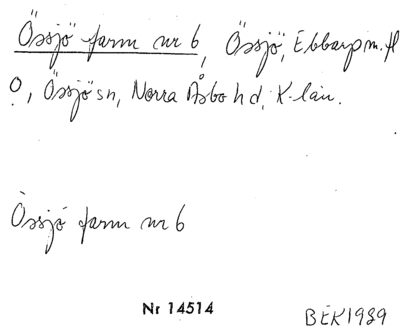 Össjö farm nr 6, Össjö, Ebbarp m.fl
o, Össjö sn, Norra Åsbo hd, K-län.
Össjö farm nr 6
Nr 14514
BEK1989